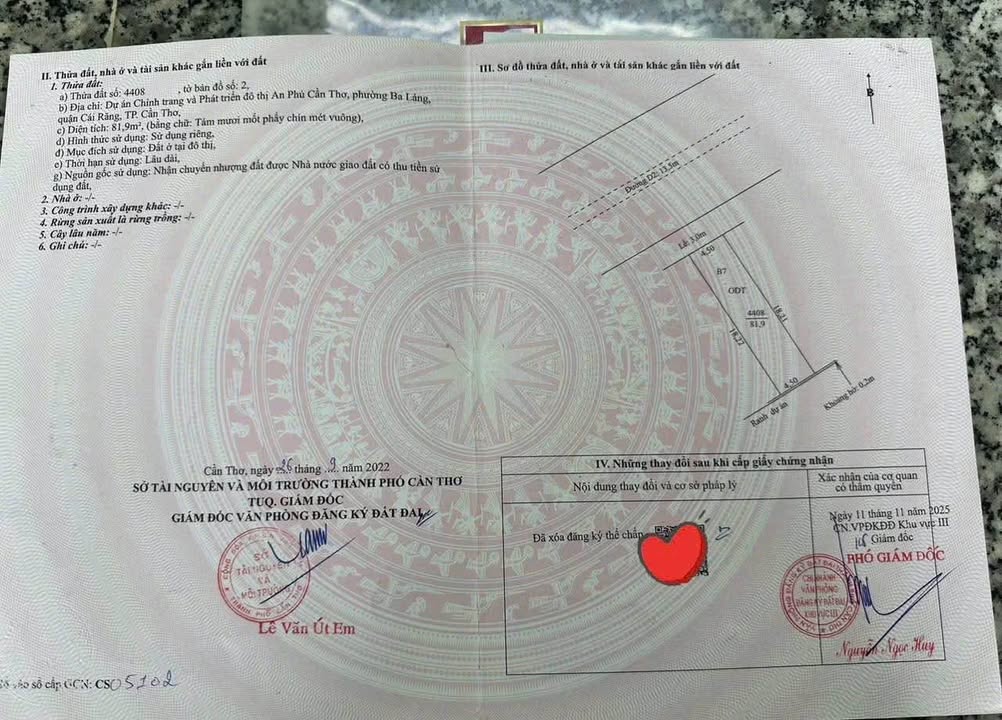 II. Thửa đất, nhà ở và tài sản khác gắn liền với đất
1. Thửa đất:
a) Thửa đất số: 4408 , tờ bản đồ số: 2,
b) Địa chỉ: Dự án Chỉnh trang và Phát triển đô thị An Phú Cần Thơ, phường Ba Láng,
quận Cái Răng, TP. Cần Thơ,
c) Diện tích: 81,9m², (bằng chữ: Tám mươi mốt phẩy chín mét vuông),
d) Hình thức sử dụng: Sử dụng riêng,
đ) Mục đích sử dụng: Đất ở tại đô thị,
e) Thời hạn sử dụng: Lâu dài,
g) Nguồn gốc sử dụng: Nhận chuyển nhượng đất được Nhà nước giao đất có thu tiền sử
dụng đất,
2. Nhà ở: -/-
3. Công trình xây dựng khác: -/-
4. Rừng sản xuất là rừng trồng: -/-
5. Cây lâu năm: -/-
6. Ghi chú: -/-
Cần Thơ, ngày 26 tháng 9 năm 2022
SỞ TÀI NGUYÊN VÀ MÔI TRƯỜNG THÀNH PHỐ CẦN THƠ
TUQ. GIÁM ĐỐC
GIÁM ĐỐC VĂN PHÒNG ĐĂNG KÝ ĐẤT ĐAI
SỞ
TÀI NGUYÊN
VÀ
MÔI TRƯỜNG
Lê Văn Út Em
Số vào sổ cấp GCN: CS05102
III. Sơ đồ thửa đất, nhà ở và tài sản khác gắn liền với đất
B
Đường D2: 13,5m
Lề: 3,0m
4,50
B7
ODT
4408
81,9
18,21
18,22
4,50
Ranh dự án
Khoảng hở: 0,2m
IV. Những thay đổi sau khi cấp giấy chứng nhận
Nội dung thay đổi và cơ sở pháp lý
Xác nhận của cơ quan
có thẩm quyền
Đã xóa đăng ký thế chấp
Ngày 11 tháng 11 năm 2025
CN.VPĐKĐĐ Khu vực III
Giám đốc
PHÓ GIÁM ĐỐC
CHI NHÁNH
VĂN PHÒNG
ĐĂNG KÝ ĐẤT ĐAI
KHU VỰC III
Nguyễn Ngọc Huy